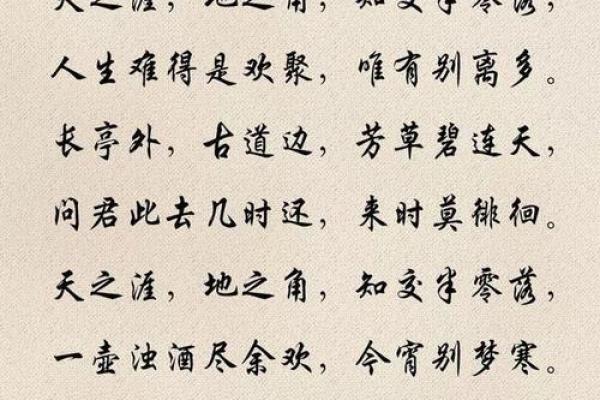 天之涯，地之角，知交半零落，
人生难得是欢聚，唯有别离多。
长亭外，古道边，芳草碧连天，
问君此去几时还，来时莫徘徊。
天之涯，地之角，知交半零落，
一壶浊酒尽余欢，今宵别梦寒。